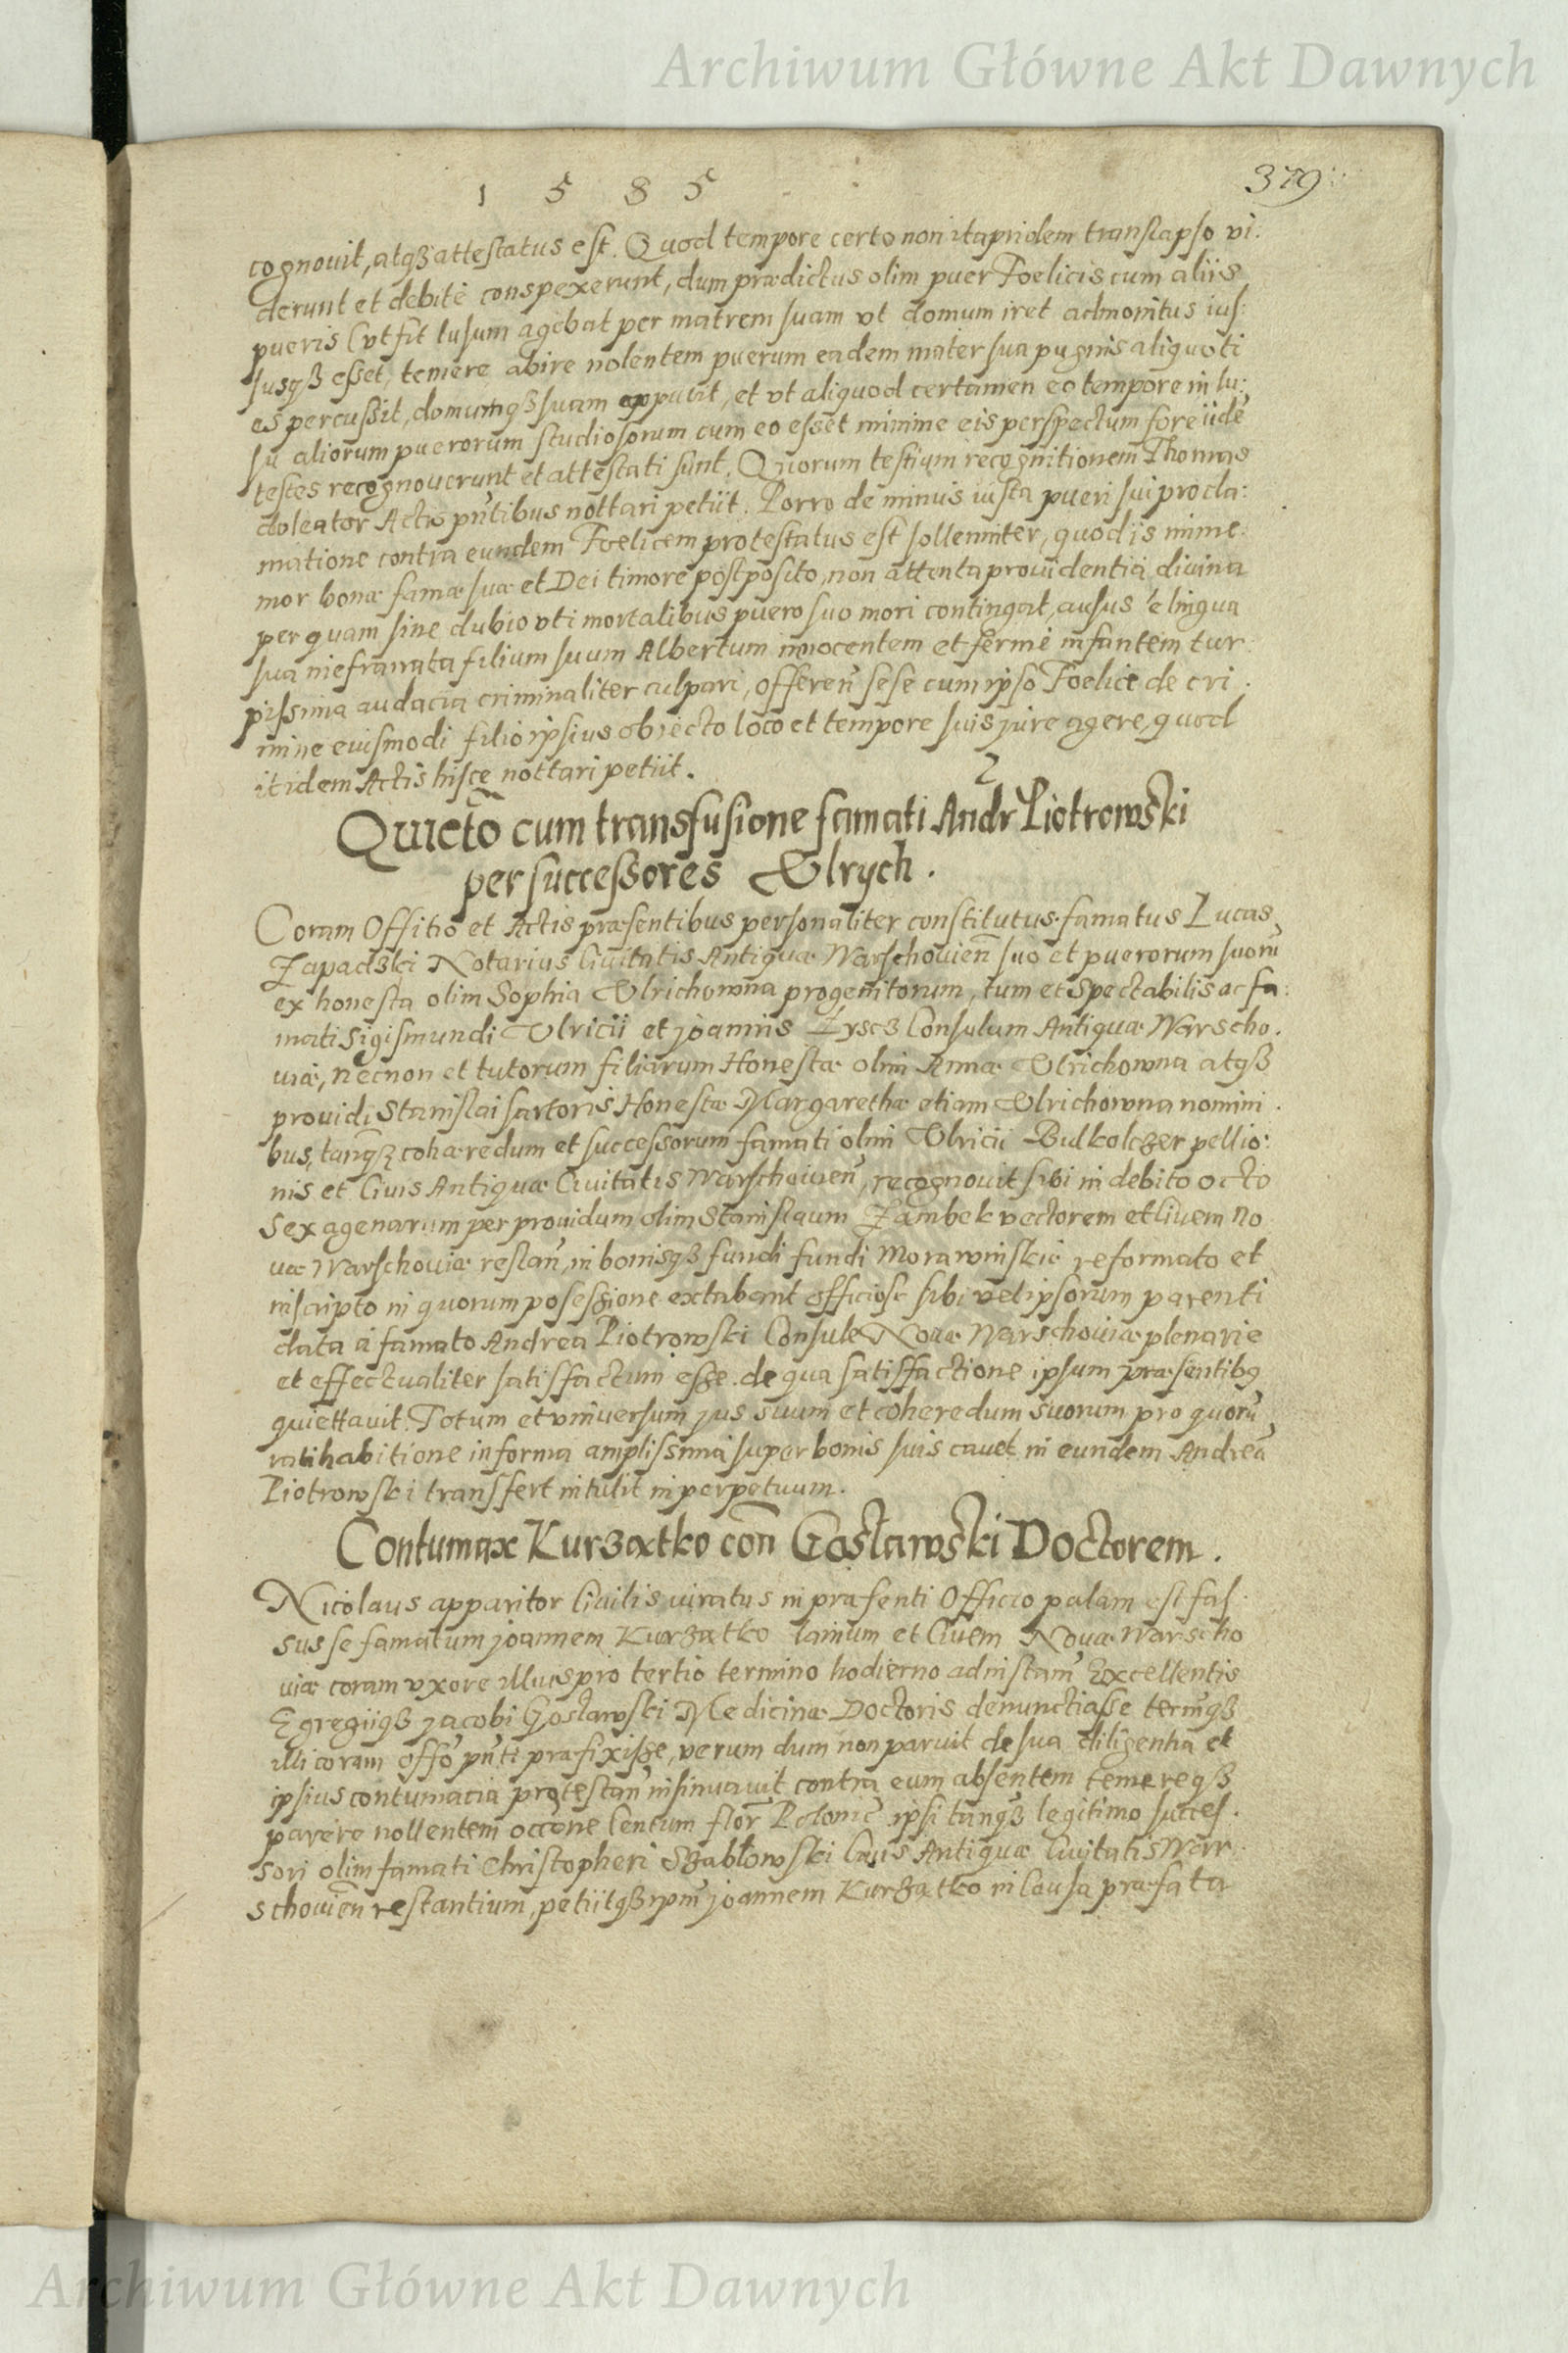 Archiwum Główne Akt Dawnych
1 5 8 5
379
cognouit, atqß attestatus est. Quod tempore certo non itapridem translapso vi:
derunt et debité conspexerunt, dum prædictus olim puer Foelicis cum aliis
pueris (vt fit lusum agebat per matrem suam vt domum iret admonitus ius:
susqß esset, temere abire nolentem puerum eadem mater sua pugnis aliquoti
es percußit, domumqß suam, et vt aliquod certamen eo tempore in lu:
su aliorum puerorum studiosorum cum eo esset minime eis perspectum fore iidē
testes recognouerunt et attestati sunt. Quorum testium recognitionem Thomas
doleator Actis pñtibus nottari petiit. Porro de minus iusta pueri sui procla:
matione contra eundem Foelicem protestatus est sollenniter, quod is mime:
mor bonæ famæ suæ et Dei timore postposito, non attenta prouidentia diuina
per quam sine dubio vti mortalibus puero suo mori contingat, ausus e lingua
sua filium suum Albertum innocentem et fermè infantem tur:
pissima audacia criminaliter culpari, offereñ sese cum ipso Foelice de cri:
mine euismodi filio ipsius obiecto loco et tempore suis jure agere, quod
itidem Actis hisce nottari petiit.
Quieto cum transfusione famati Andr Piotrowski
per successores Vlrych.
Coram Offitio et Actis præsentibus personaliter constitutus famatus Lucas
Notarius Ciuitatis Antiquæ Warschouieñ suo et puerorum suorū
ex honesta olim Sophia Vlrichowna progenitorum, tum et Spectabilis ac fa:
mati Sigismundi Vlricii et joannis Consulum Antiquæ Warscho:
uiæ, necnon et tutorum filiarum Honestæ olim Annæ Vlrichowna atqß
prouidi Stanislai sartoris Honestæ Margarethæ etiam Vlrichowna nomini:
bus, tanqß cohæredum et successorum famati olim Vlricii Bidkolczer pellio:
nis et Ciuis Antiquæ Ciuitatis Warschouieñ, recognouit sibi in debito octo
sexagenarum per prouidum olim Stanislaum vectorem et Ciuem No
uæ Warschouiæ restañ, in bonisqß fundi fundi Morawinskie reformato et
inscripto in quorum poseßione extabant officiose sibi vel ipsorum parenti
data á famato Andrea Piotrowski Consule Nouæ Warschouiæ plenarie
et effectualiter satisfactum eße. de qua satisfactione ipsum præsentibq
quiettauit. Totum et vniuersum jus suum et coheredum suorum pro quorū
ratihabitione in forma amplissima super bonis suis cauet in eundem Andreā
Piotrowski transfert intulit in perpetuum.
Contumax Kurzątko coñ Gosławski Doctorem.
Nicolaus apparitor Ciuilis iuratus in præsenti Officio palam est fas:
sus se famatum joannem Kurzątko lanium et Ciuem Nouæ Warscho
uiæ coram vxore illius pro tertio termino hodierno ad instañ Excellentis
Egregiiqß jacobi Gosławski Medicinæ Doctoris denunctiaße termqß
illi coram offō pñti præfixiße, verum dum non paruit de sua diligentia et
ipsius contumacia protestañ insinuauit contra eum absentem temereqß
parere nollentem occōne Centum flor̄ Polonic̄ ipsi tanqß legitimo succes:
sori olim famati Christopheri Szabłowski Ciuis Antiquæ Ciuitatis War:
schouieñ restantium, petiitqß ipm̄ joannem Kurzątko in Causa præfata
Archiwum Główne Akt Dawnych